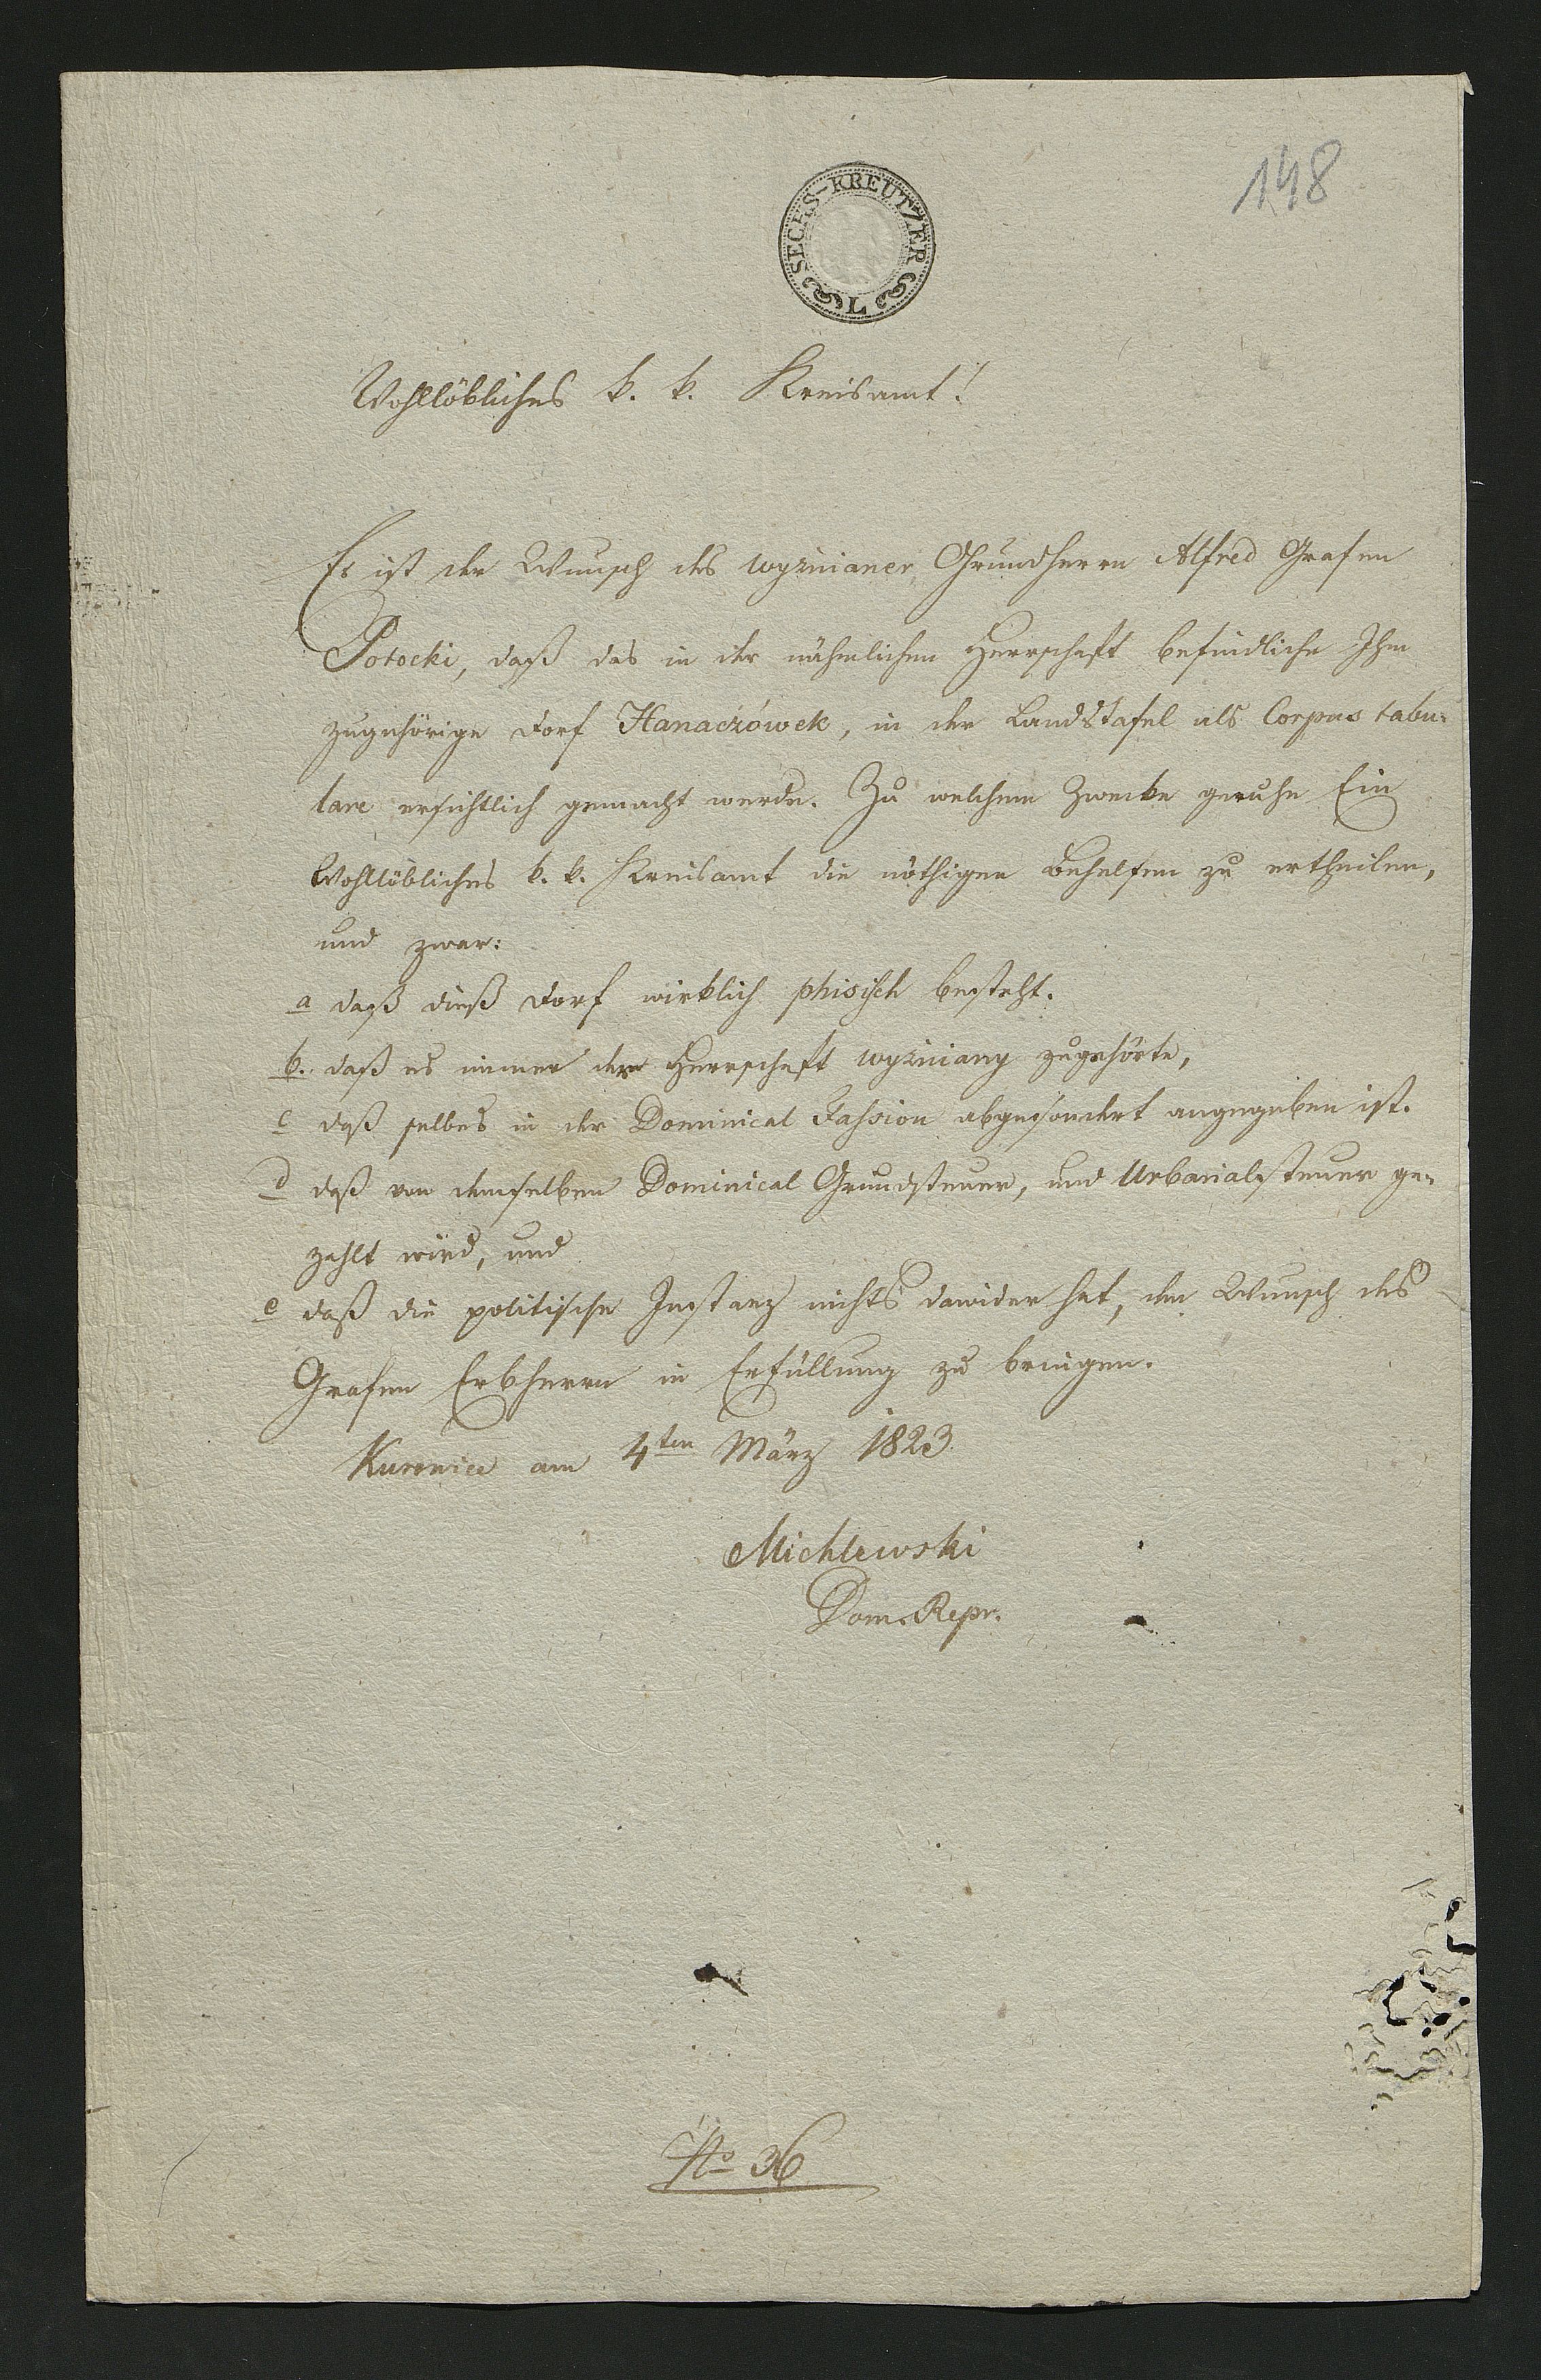 148
SECHS-KREUTZER
L
Wohllöbliches k. k. Kreisamt!
Es ist der Wunsch des wyznianer Grundherrn Alfred Grafen
Potocki, daß das in der nähmlichen Herrschaft befindliche Ihm
zugehörige Dorf Hanaczówek, in der Landstafel als Corpus tabu-
lare ersichtlich gemacht werde. Zu welchem Zwecke geruhe Ein
Wohllöbliches k. k. Kreisamt die nöthigen Behelfen zu ertheilen,
und zwar:
a daß dieß Dorf wirklich phisisch besteht.
b. daß es immer der Herrschaft wyzniany zugehörte,
c daß selbes in der Dominical Fassion abgesondert angegeben ist.
d daß von demselben Dominical Grundsteuer, und Urbarialsteuer ge-
zahlt wird, und
e daß die politische Instanz nichts dawider hat, den Wunsch des
Grafen Erbherrn in Erfüllung zu bringen.
Kurowice am 4ten März 1823
Michlewski
Dom. Repr.
No 36